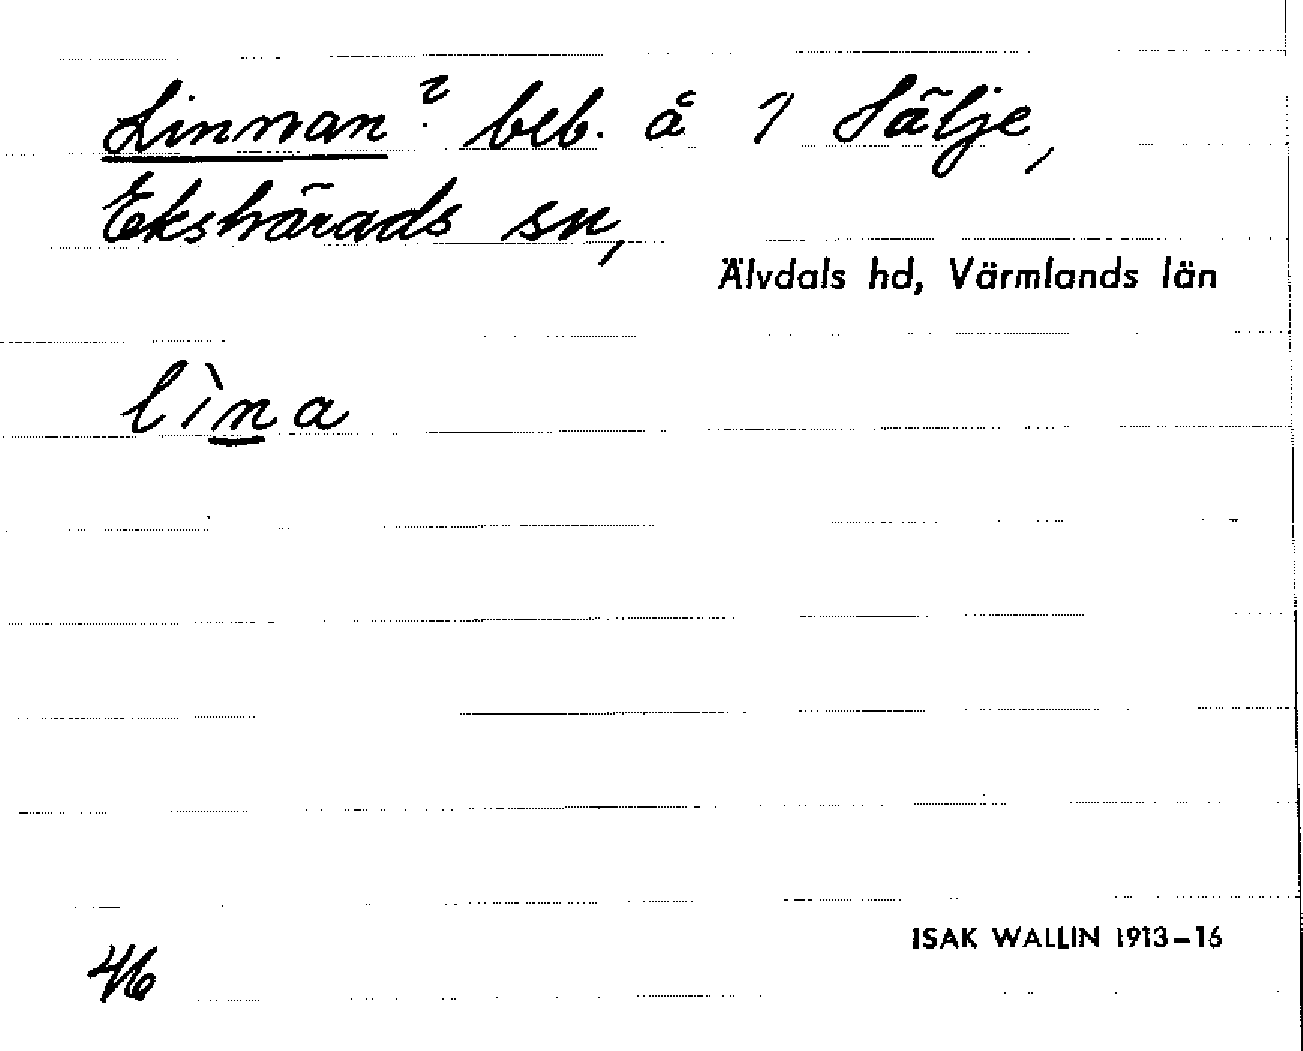 Linnan? beb. å 1 Sälje,
Ekshärads sn,
Älvdals hd, Värmlands län
lìna
ISAK WALLIN 1913–16
46